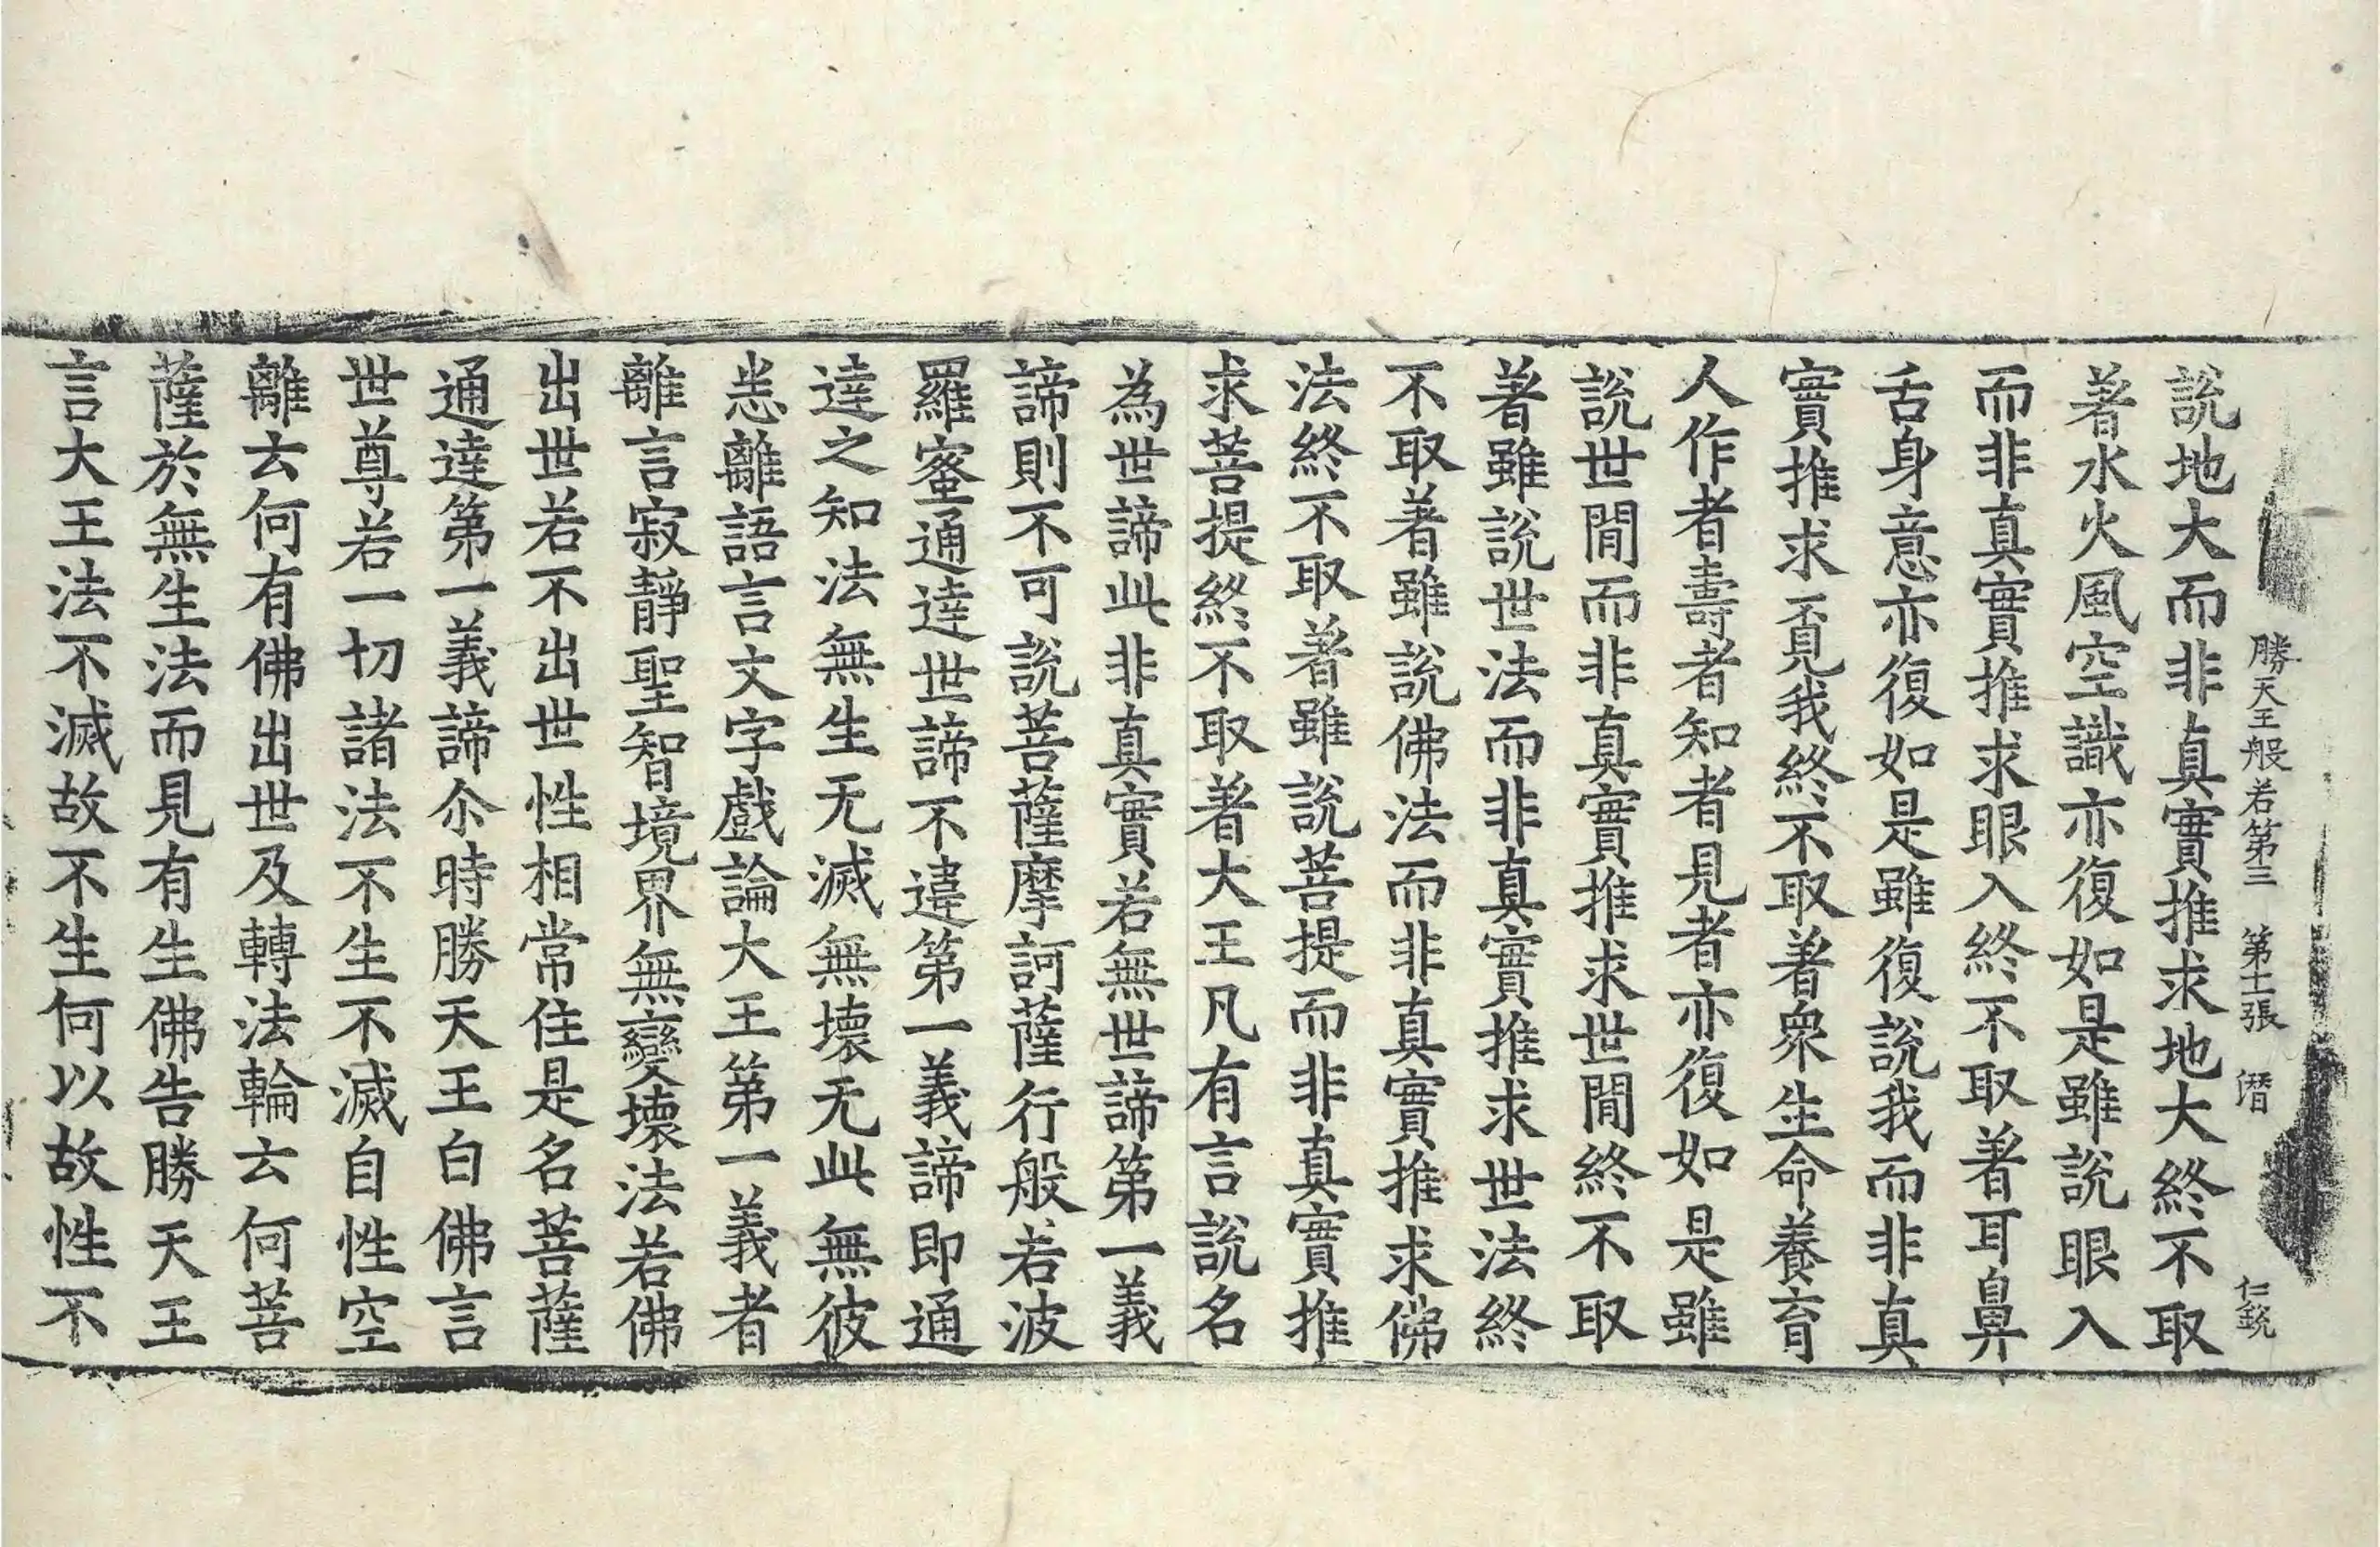 勝天王般若第三 第十二張 潛 仁銳
說地大而非真實推求地大終不取
著水火風空識亦復如是雖說眼入
而非真實推求眼入終不取著耳鼻
舌身意亦復如是雖復說我而非真
實推求覓我終不取著衆生命養育
人作者壽者知者見者亦復如是雖
說世閒而非真實推求世閒終不取
著雖說世法而非真實推求世法終
不取著雖說佛法而非真實推求佛
法終不取著雖說菩提而非真實推
求菩提終不取著大王凡有言說名
為世諦此非真實若無世諦第一義
諦則不可說菩薩摩訶薩行般若波
羅蜜通達世諦不違第一義諦即通
達之知法無生无滅無壞无此無彼
悉離語言文字戲論大王第一義者
離言寂靜聖智境界無變壞法若佛
出世若不出世性相常住是名菩薩
通達第一義諦尒時勝天王白佛言
世尊若一切諸法不生不滅自性空
離云何有佛出世及轉法輪云何菩
薩於無生法而見有生佛告勝天王
言大王法不滅故不生何以故性不